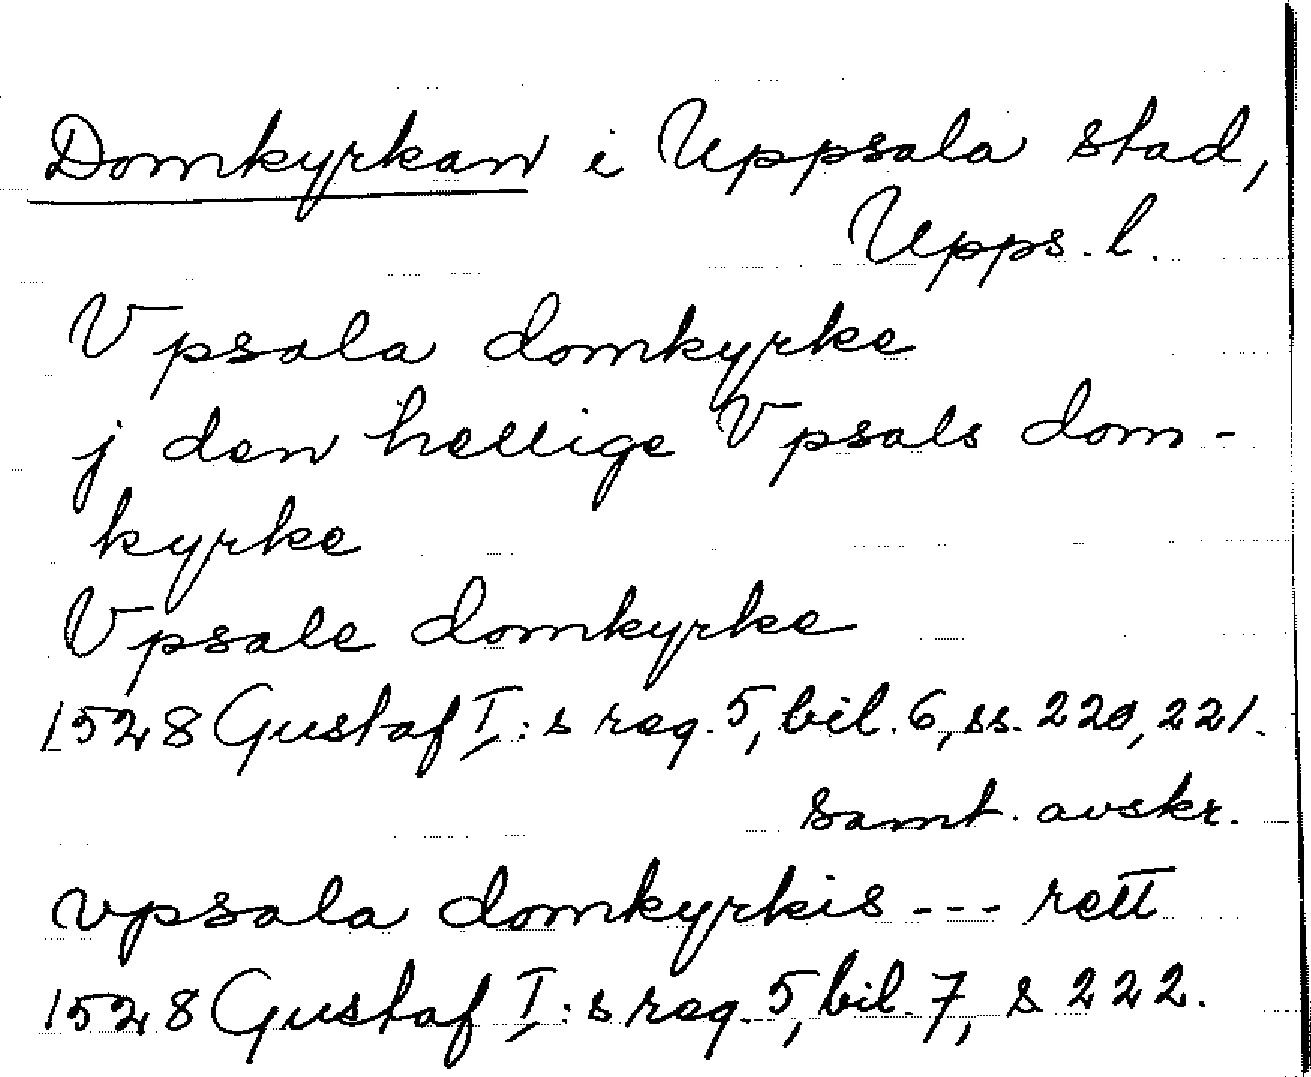 Domkyrkan i Uppsala stad,
Upps. l.
Vpsala domkyrke
j den hellige Vpsals dom-
kyrke
Vpsale domkyrke
1528 Gustaf I:s reg. 5, bil. 6, ss. 220, 221.
samt. avskr.
vpsala domkyrkis --- rett
1528 Gustaf I:s reg. 5, bil. 7, s 222.